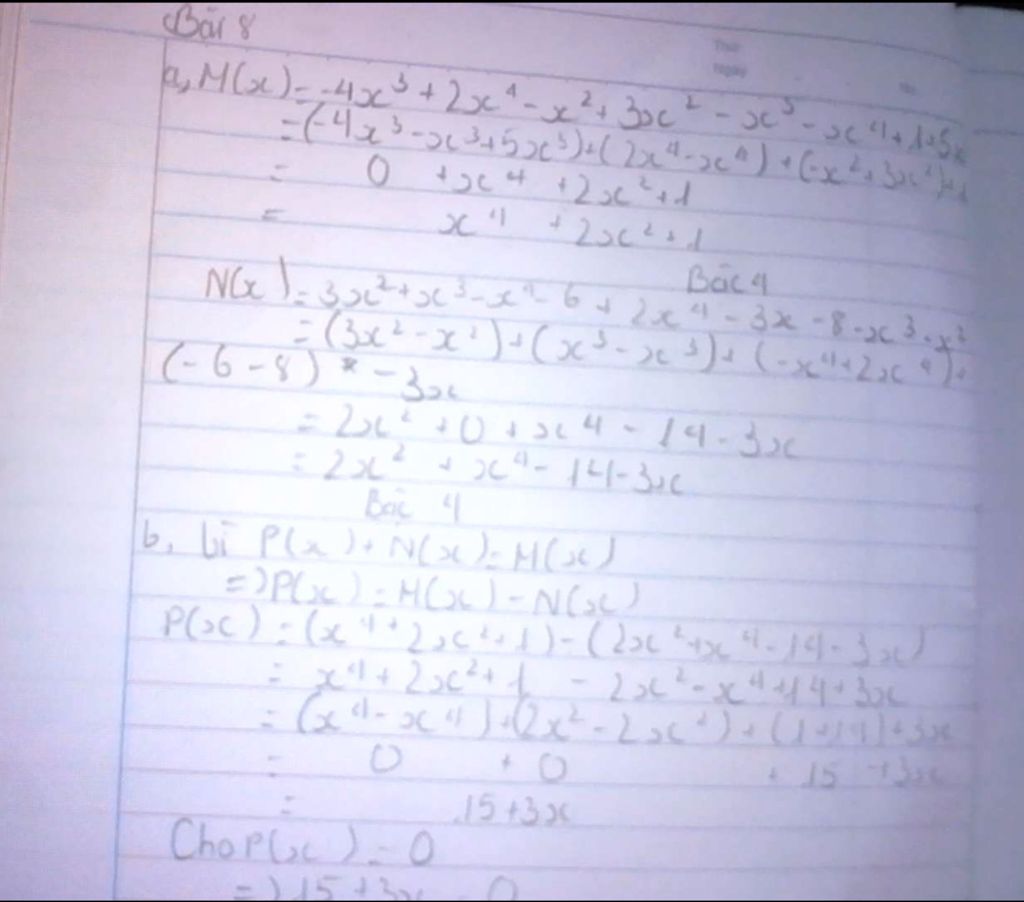 Bài 8
a, M(x) = -4x³ + 2x⁴ - x² + 3x² - x³ - x⁴ + 1 + 5x
= (-4x³ - x³ + 5x³) + (2x⁴ - x⁴) + (-x² + 3x²) + 1
= 0 + x⁴ + 2x² + 1
= x⁴ + 2x² + 1
Bậc 4
N(x) = 3x² + x³ - x⁴ - 6 + 2x⁴ - 3x - 8 - x³ - x²
= (3x² - x²) + (x³ - x³) + (-x⁴ + 2x⁴) +
(-6 - 8) - 3x
= 2x² + 0 + x⁴ - 14 - 3x
= 2x² + x⁴ - 14 - 3x
Bậc 4
b, Vì P(x) + N(x) = M(x)
=> P(x) = M(x) - N(x)
P(x) = (x⁴ + 2x² + 1) - (2x² + x⁴ - 14 - 3x)
= x⁴ + 2x² + 1 - 2x² - x⁴ + 14 + 3x
= (x⁴ - x⁴) + (2x² - 2x²) + (1 + 14) + 3x
= 0 + 0 + 15 + 3x
= 15 + 3x
Cho P(x) = 0
=> 15 + 3x = 0